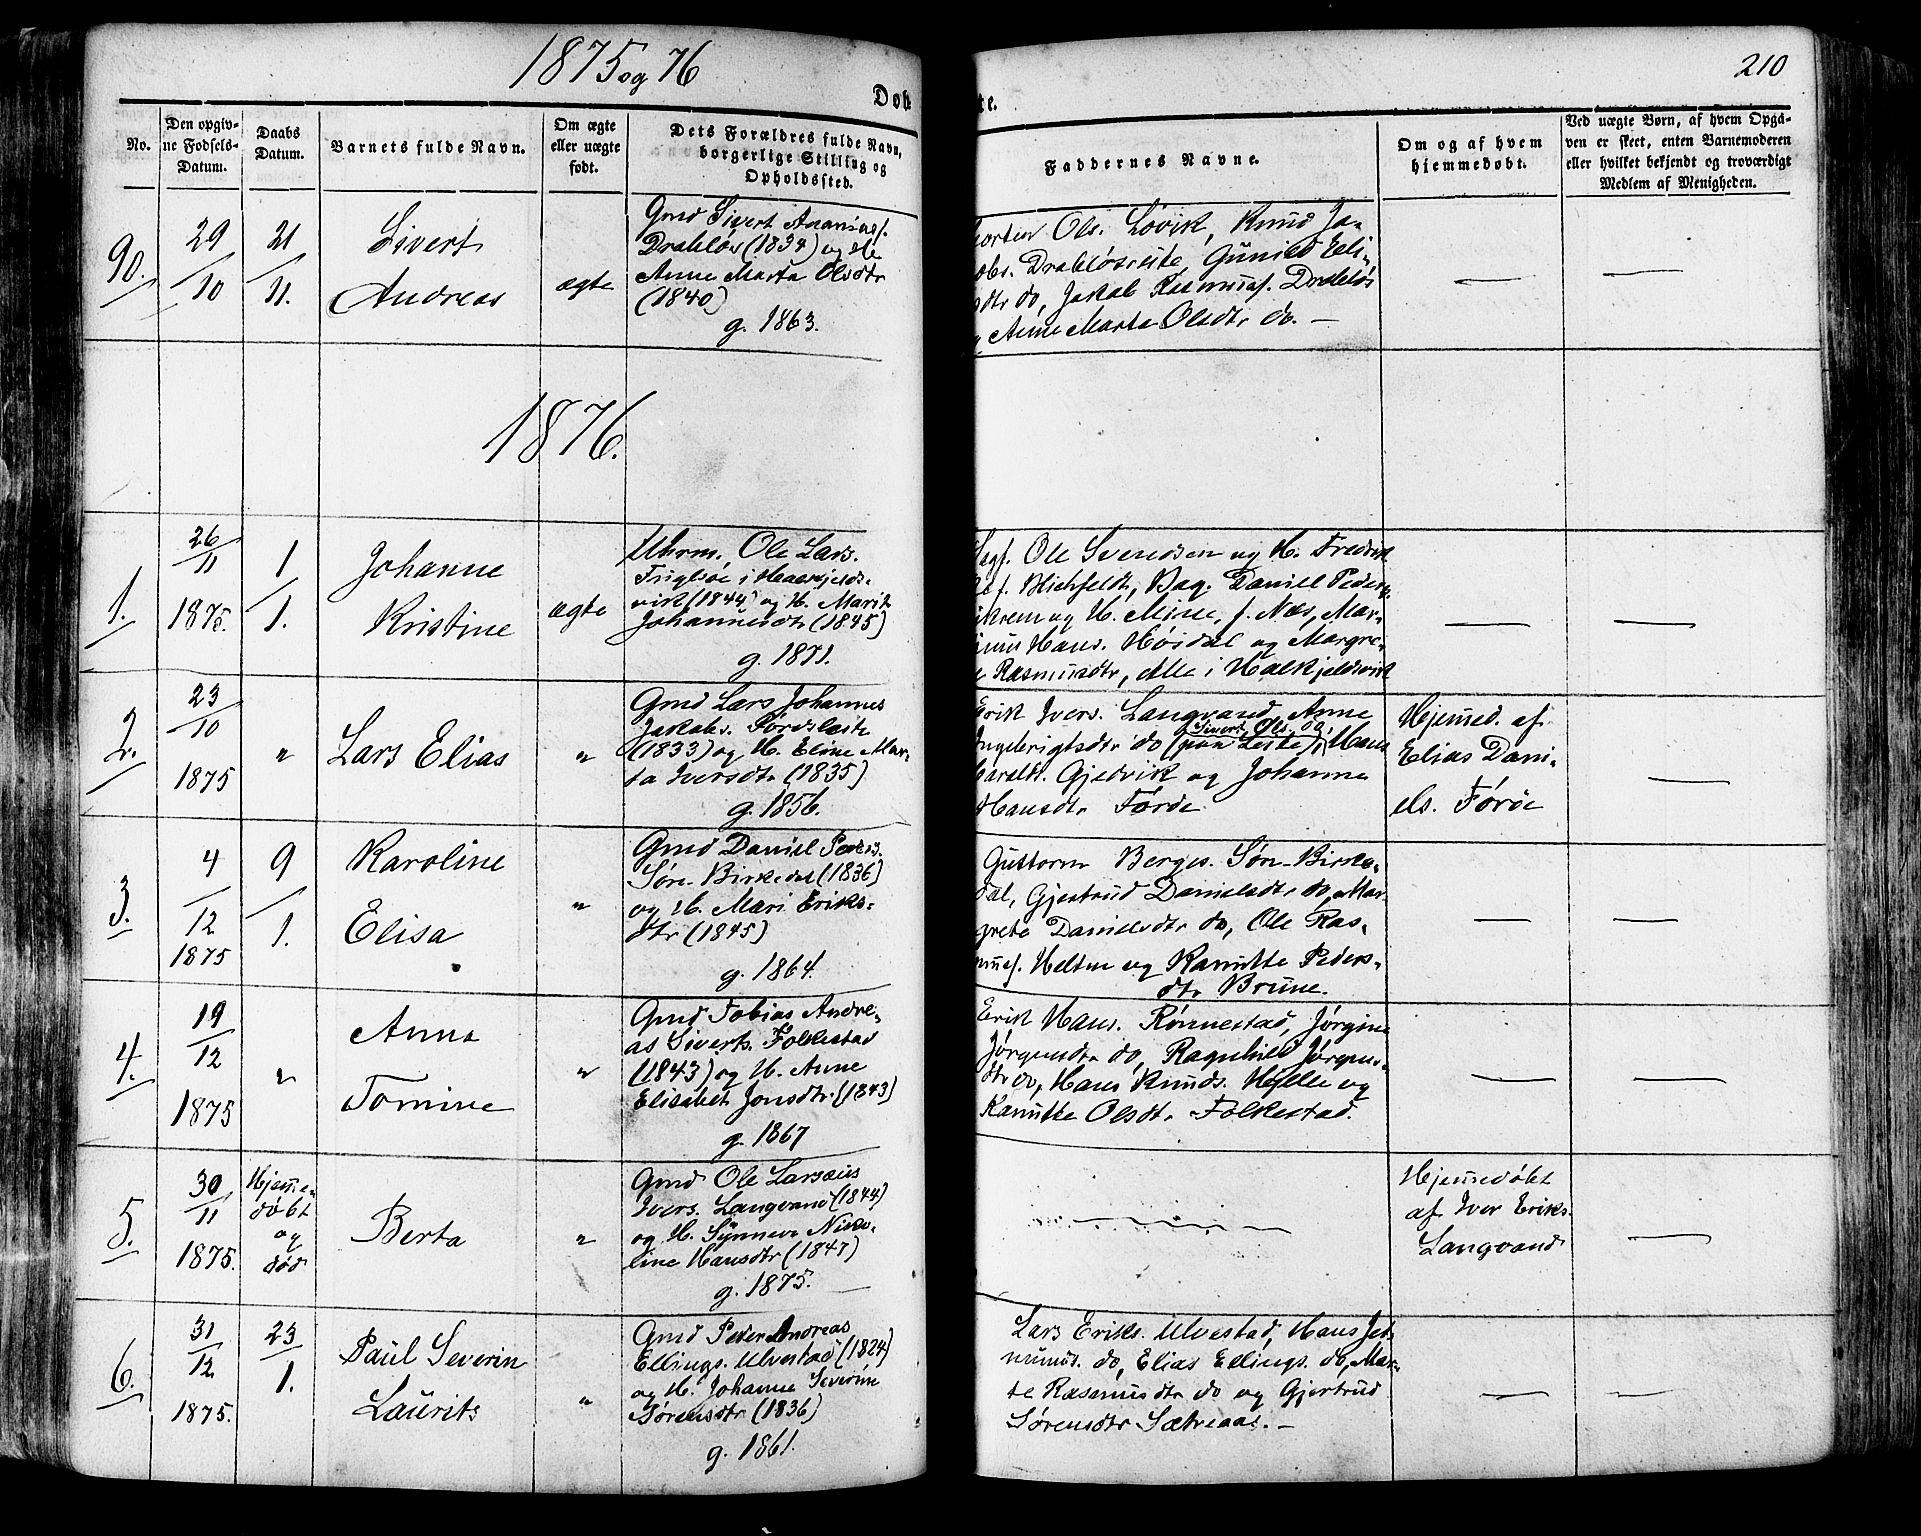 1875 og 76
210
Døb
te.
No.
Den opgiv-
ne Fødsels-
Datum.
Daabs
Datum.
Barnets fulde Navn.
Om ægte
eller uægte
født.
Dets Forældres fulde Navn,
borgerlige Stilling og
Opholdssted.
Faddernes Navne.
Om og af hvem
hjemmedøbt.
Ved uægte Børn, af hvem Opgi-
ven er skeet, enten Barnemoderen
eller hvilket bekjendt og troværdigt
Medlem af Menigheden.
90.
29/10
21/11.
Sivert
Andreas
ægte
Gmd Sivert Ananiasf.
Drabløs (1834) og H.
Anne Marta Olsdtr
(1840)
g. 1863.
Morten Ols. Løvik, Knud Ja-
kobs. Drabløsreite, Gunild Eli-
asdtr do, Jakob Rasmusf. Drabløs
og Anne Marta Olsdtr do. —
1876.
1.
26/11
1875.
1/1.
Johanne
Kristine
ægte
Uhrm. Ole Lars.
i Halkjelds-
vik (1844) og H. Marit
Johannesdtr (1845)
g. 1871.
Ole Svendsen og H. Fredrik
Blichfeldt, Bag. Daniel Peders.
og H. Mine, f. Næs, Mar-
Hans. Høidal og Margre-
te Rasmusdtr, Alle i Halkjeldsvik
2.
23/10
1875
"
Lars Elias
"
Gmd Lars Johannes
Jakobs. Førdsleite
(1833) og H. Eline Mar-
ta Iversdtr (1835)
g. 1856.
Erik Ivers. Langvand, Anne
Sivert Ols. og
Ingebrigtsdtr do (paa Leite), Hans
Haralds. Gjedvik og Johanna
Hansdtr Førde
Hjemmed. af
Elias Dani-
els. Førde
3.
4/12
1875
9/1.
Karoline
Elisa
"
Gmd Daniel Peders.
Søre Birkedal (1836)
og H. Mari Eriks-
dtr (1845)
g. 1864.
Guttorm Berges. Søre Birke-
dal, Gjertrud Danielsdtr do, Mar-
grete Danielsdtr do, Ole Ras-
musf. Heltne og Kanutte Peders-
dtr Brune.
4.
19/12
1875
"
Anna
Tomine
"
Gmd Tobias Andre-
as Siverts. Folkestad
(1843) og H. Anne
Elisabet Jonsdtr (1843)
g. 1867
Erik Hans. Rønnestad, Jørgine
Jørgensdtr do, Ragnhild Jørgens-
dtr do, Hans Knuds. Hjelle og
Kanutte Olsdtr Folkestad.
5.
30/11
1875.
Hjemme-
døbt
og
død
Berta
"
Gmd Ole Larsæus
Ivers. Langvand (1844)
og H. Synneva Niko-
line Hansdtr (1847)
g. 1875.
Hjemmedøbt
af Iver Eriks.
Langvand
6.
31/12
1875.
23/1.
Paul Severin
Laurits
"
Gmd Peder Andreas
Ellings. Ulvestad (1824)
og H. Johanne Severine
Sørensdtr (1836)
g. 1861.
Lars Eriks. Ulvestad, Hans Jet-
munds. do, Elias Ellings. do, Mar-
te Rasmusdtr do og Gjertrud
Sørensdtr Sætreaas. —